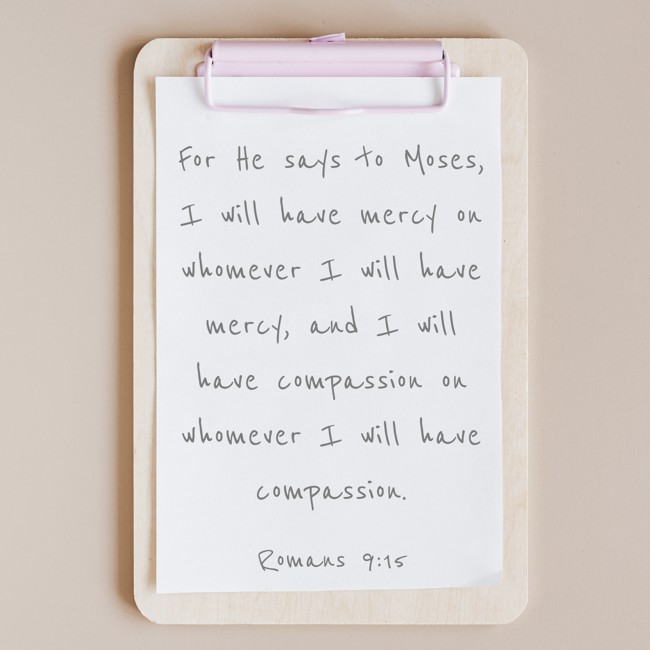 For He says to Moses,
I will have mercy on
whomever I will have
mercy, and I will
have compassion on
whomever I will have
compassion.
Romans 9:15